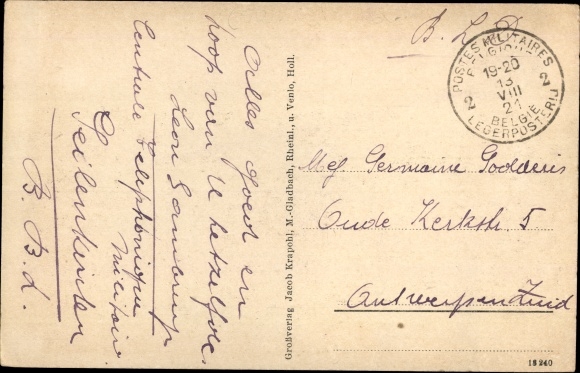 POSTES MILITAIRES
BELGIQUE
19-20
13
VIII
21
2 2
BELGIE
LEGERPOSTERIJ
Alles Goed en
hoop van U hetzelfde
Leon
Centrale Telephonique
militair
Geilenkirchen
B. B. L.
Großverlag Jacob Krapohl, M.-Gladbach, Rheinl., u. Venlo, Holl.
Mej Germaine Godderis
Oude Kerkstr. 5
Antwerpen Zuid
18240